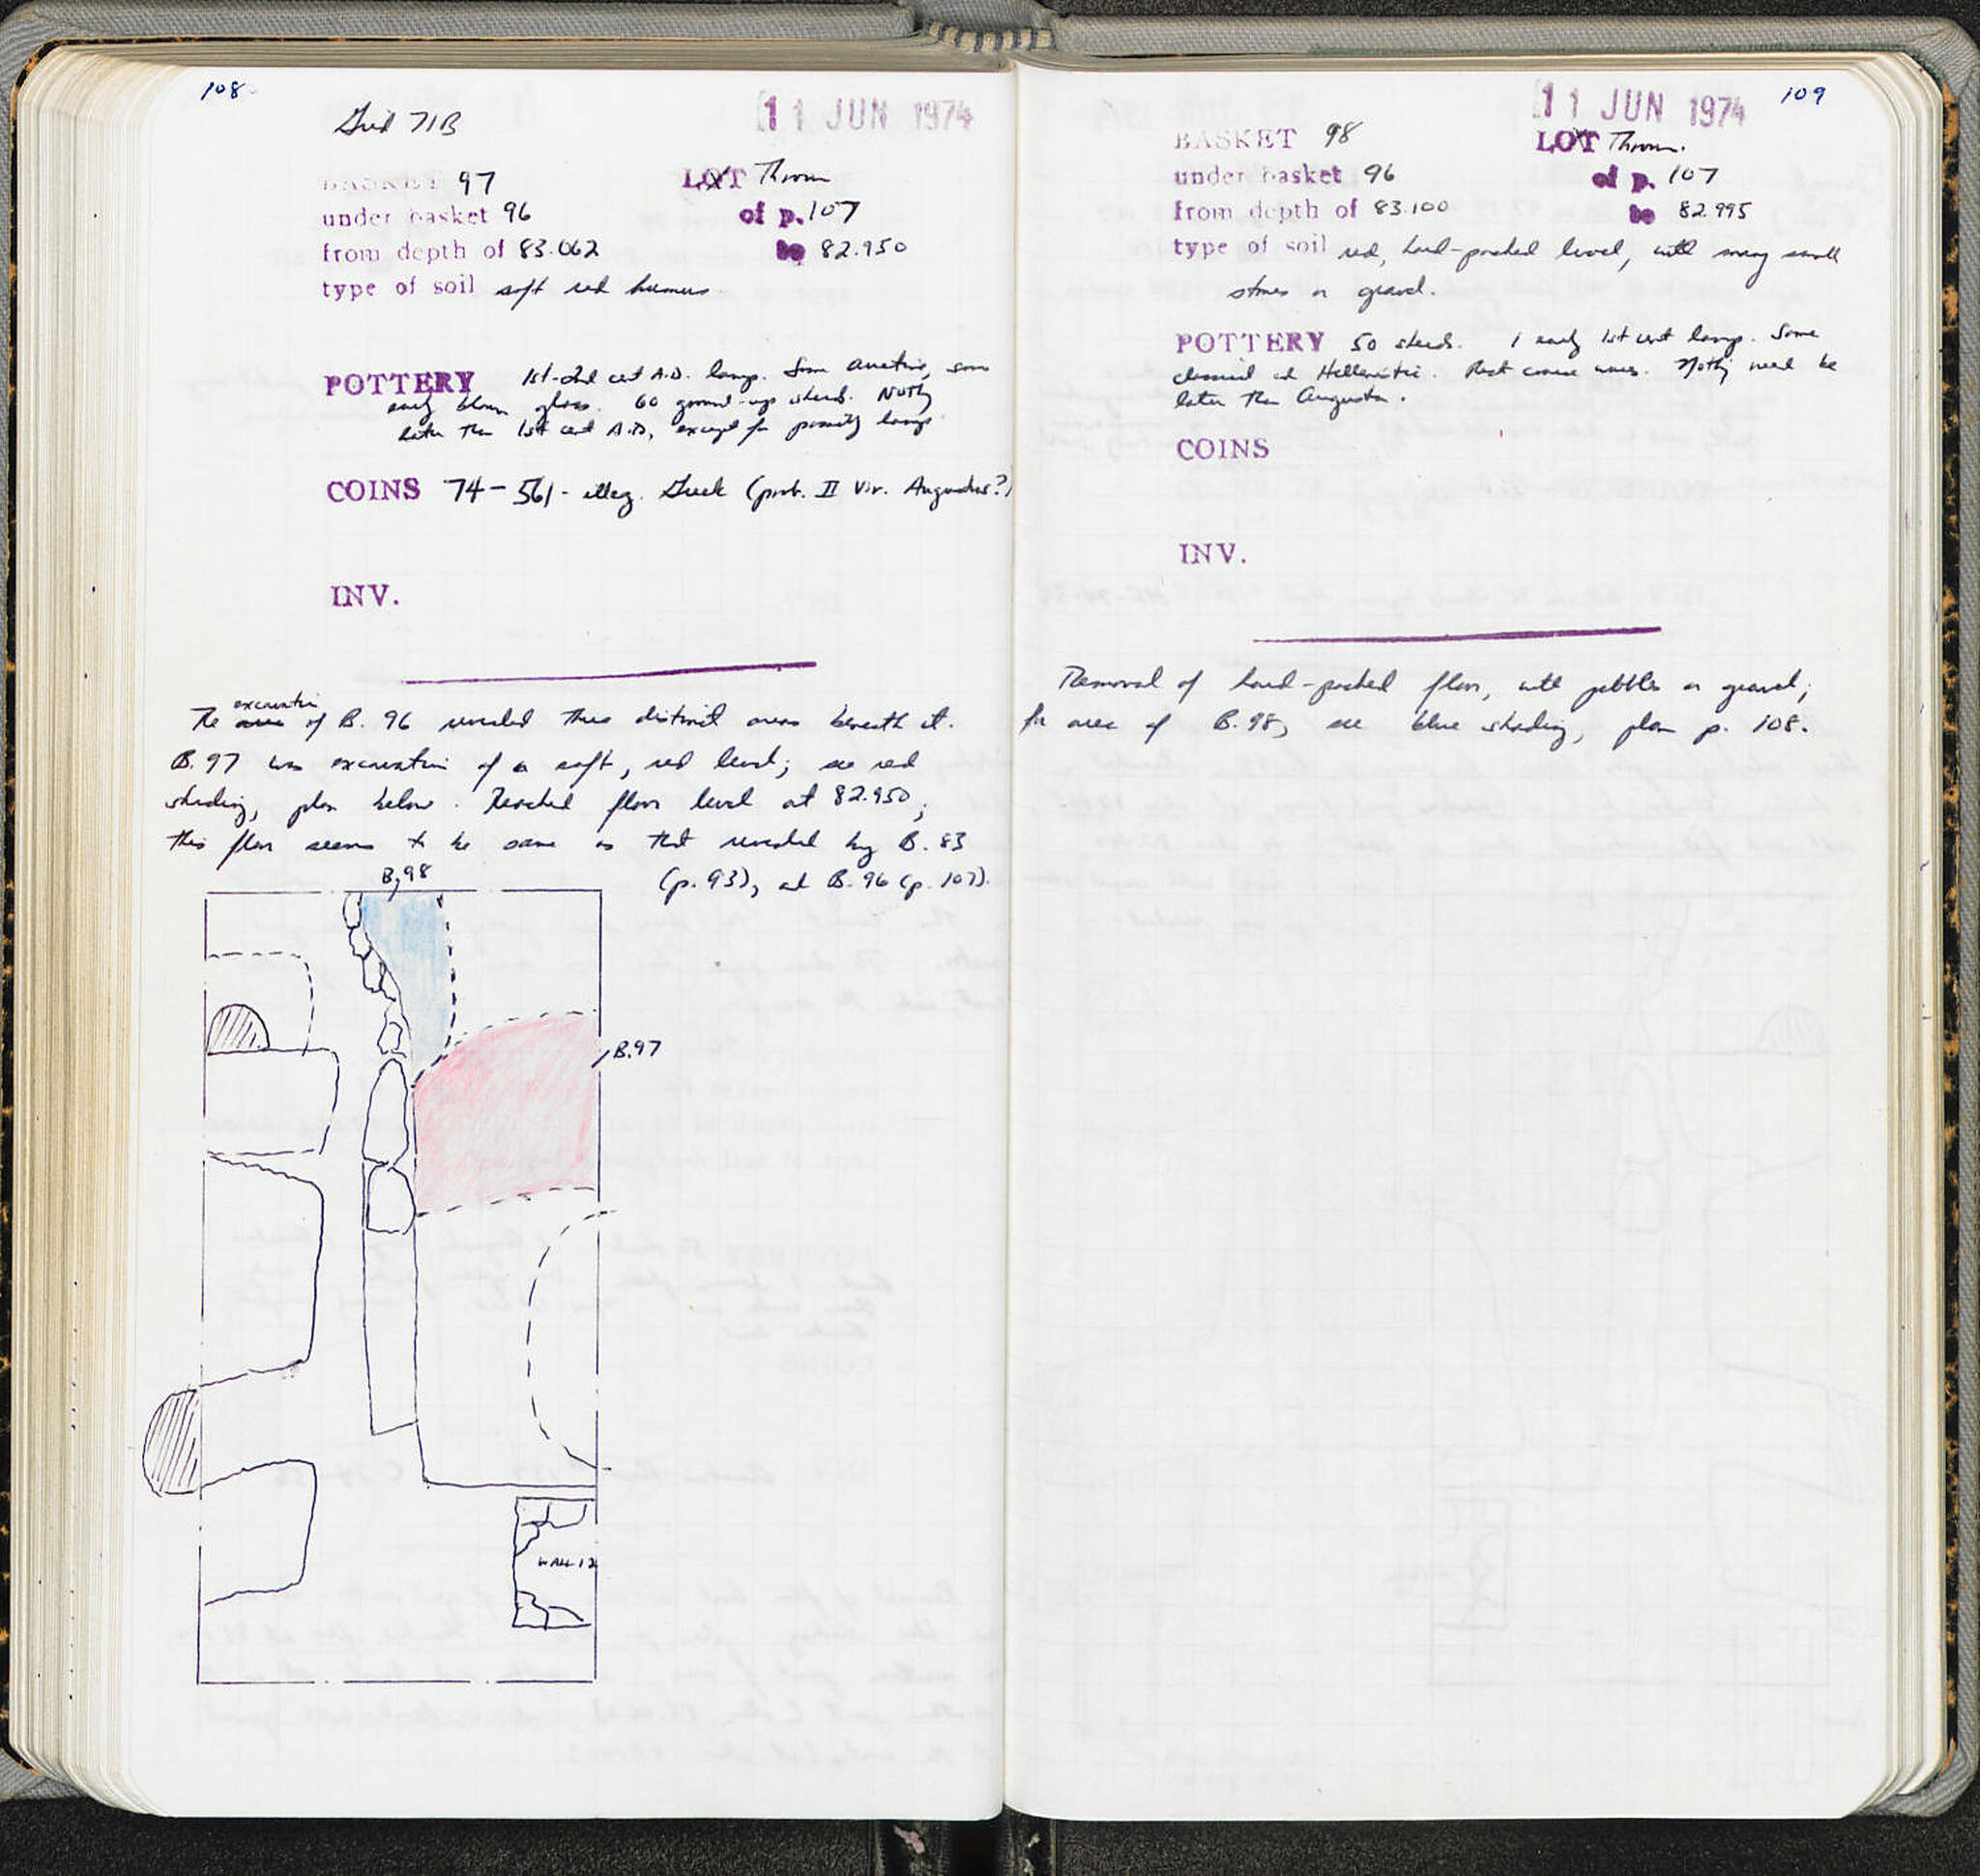 108
Grid 71B
11 JUN 1974
BASKET 97 LOT Thrown
under basket 96 of p. 107
from depth of 83.062 to 82.950
type of soil soft red humus
POTTERY 1st-2nd cent A.D. lamp. Some Arretine, some
early blown glass. 60 ground-up sherds. Nothing
later than 1st cent A.D., except for possibly lamp.
COINS 74-561- illeg. Greek (prob. II Vir. Augustus?)
INV.
The excavation of B. 96 revealed three distinct areas beneath it.
B. 97 was excavation of a soft, red level; see red
shading, plan below. Reached floor level at 82.950;
this floor seems to be same as that revealed by B. 83
(p. 93), and B. 96 (p. 107).
B. 98
B. 97
WALL 12
109
11 JUN 1974
BASKET 98 LOT Thrown.
under basket 96 of p. 107
from depth of 83.100 to 82.995
type of soil red, hard-packed level, with many small
stones or gravel.
POTTERY 50 sherds. 1 early 1st cent lamp. Some
classical and Hellenistic. Rest coarse wares. Nothing need be
later than Augustan.
COINS
INV.
Removal of hard-packed floor, with pebbles or gravel;
for area of B. 98, see blue shading, plan p. 108.